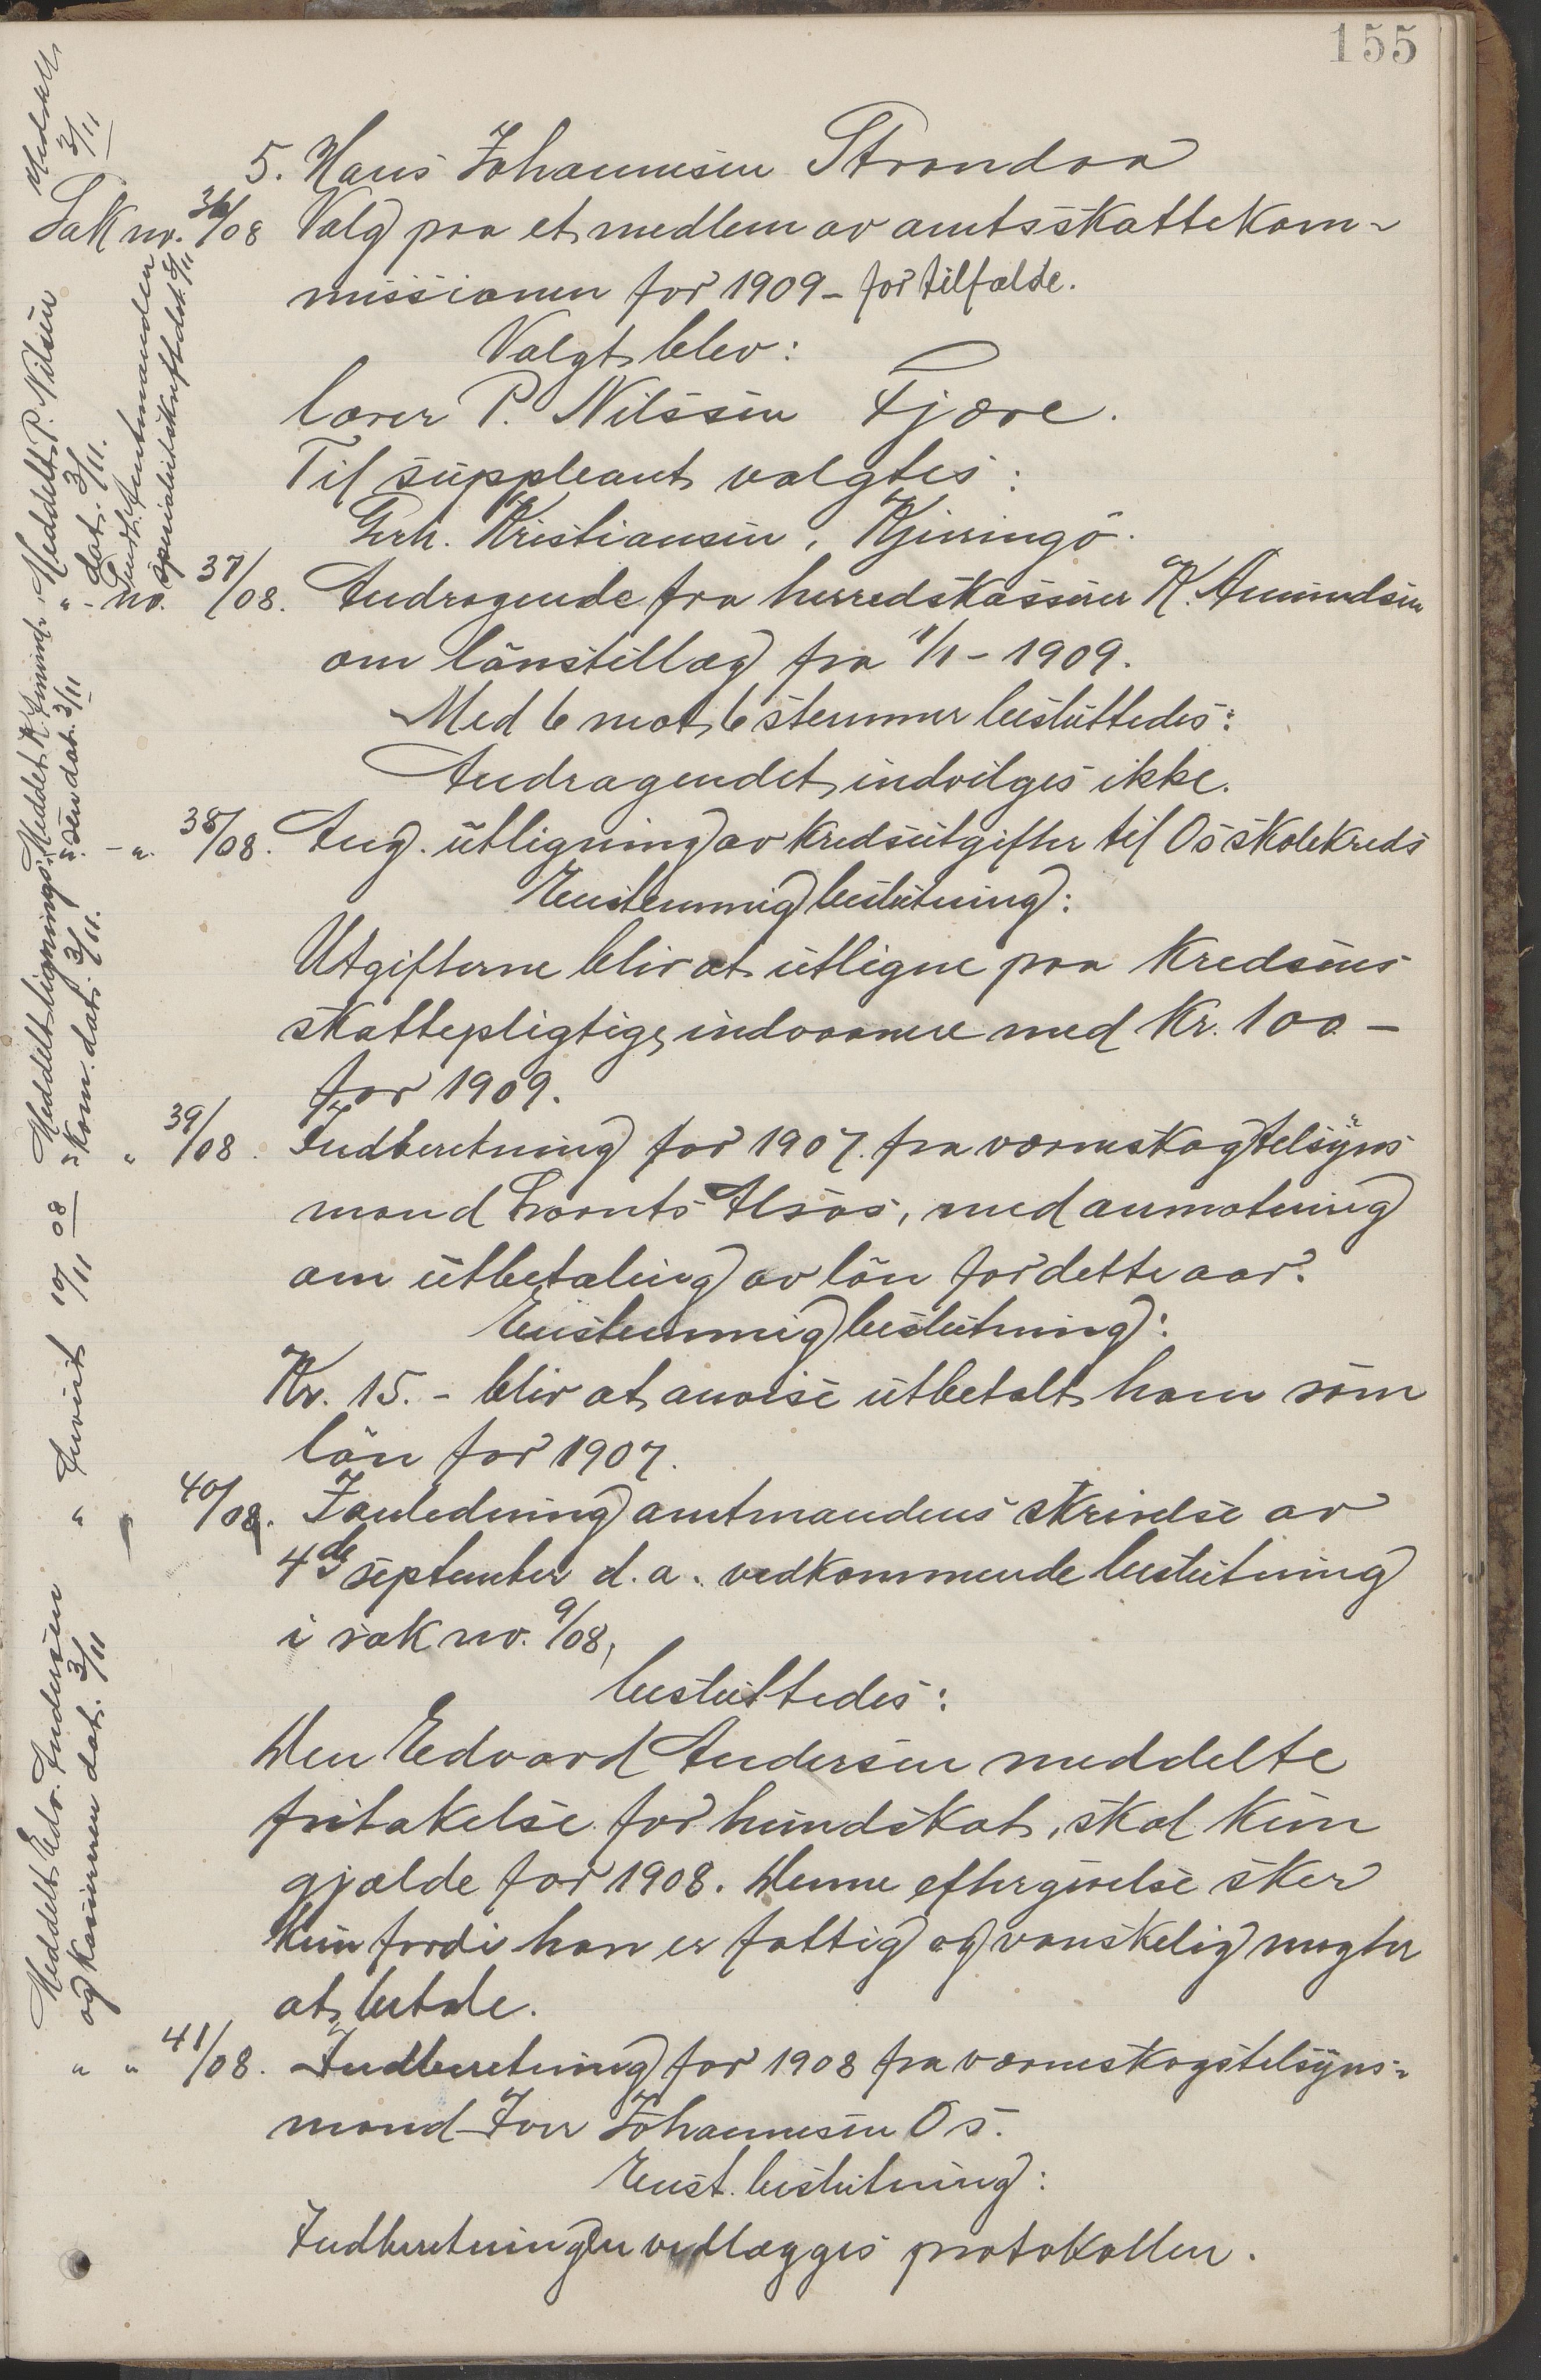 155
5. Hans Johannesen Strandaa
Meddelt 3/11
Sak no. 36/08 Valg paa et medlem av amtsskattekom-
missionen for 1909 - for tilfælde.
Valgt blev:
lærer P. Nilssen Fjære.
Til suppleant valgtes:
Gerh. Kristiansen, Kjerringö.
Meddelt P. Nilsen
dat. 3/11.
Sendt Amtmanden
specialutskrift dat. 3/11
" - no. 37/08. Andragende fra herredskasserer K. Amundsen
om lönstillæg fra 1/1 - 1909.
Med 6 mot 6 stemmer besluttedes:
Andragendet indvilges ikke.
Meddelt K. Amund-
sen dat. 3/11
" - " 38/08. Ang. utligning av kredsutgifter til Os skolekreds
Enstemmig beslutning:
Utgifterne blir at utligne paa kredsens
skattepligtige indvaanere med Kr. 100 -
for 1909.
Meddelt lignings-
kom. dat. 3/11.
" " 39/08. Indberetning for 1907 fra værneskogtelsyns
mand Lorents Alsos, med anmotning
om utbetaling av lön for dette aar.
Enstemmig beslutning:
Kr. 15. - blir at anvise utbetalt ham som
lön for 1907.
Anvist 10/11 08
" " 40/08. I anledning amtmandens skrivelse av
4de september d.a. vedkommende beslutning
i sak no. 9/08,
besluttedes:
Den Edvard Andersen meddelte
fritakelse for hundskat, skal kun
gjælde for 1908. Denne eftergivelse sker
kun fordi han er fattig og vanskelig magter
at betale.
Meddelt Edv. Andersen
og kasseren dat. 3/11
" " 41/08. Indberetning for 1908 fra værneskogstelsyns-
mand Jon Johannesen Os.
Enst. beslutning:
Indberetningen vedlægges protokollen.